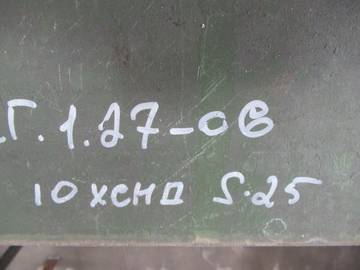 Г.1.27-06
10 ХСНД S.25